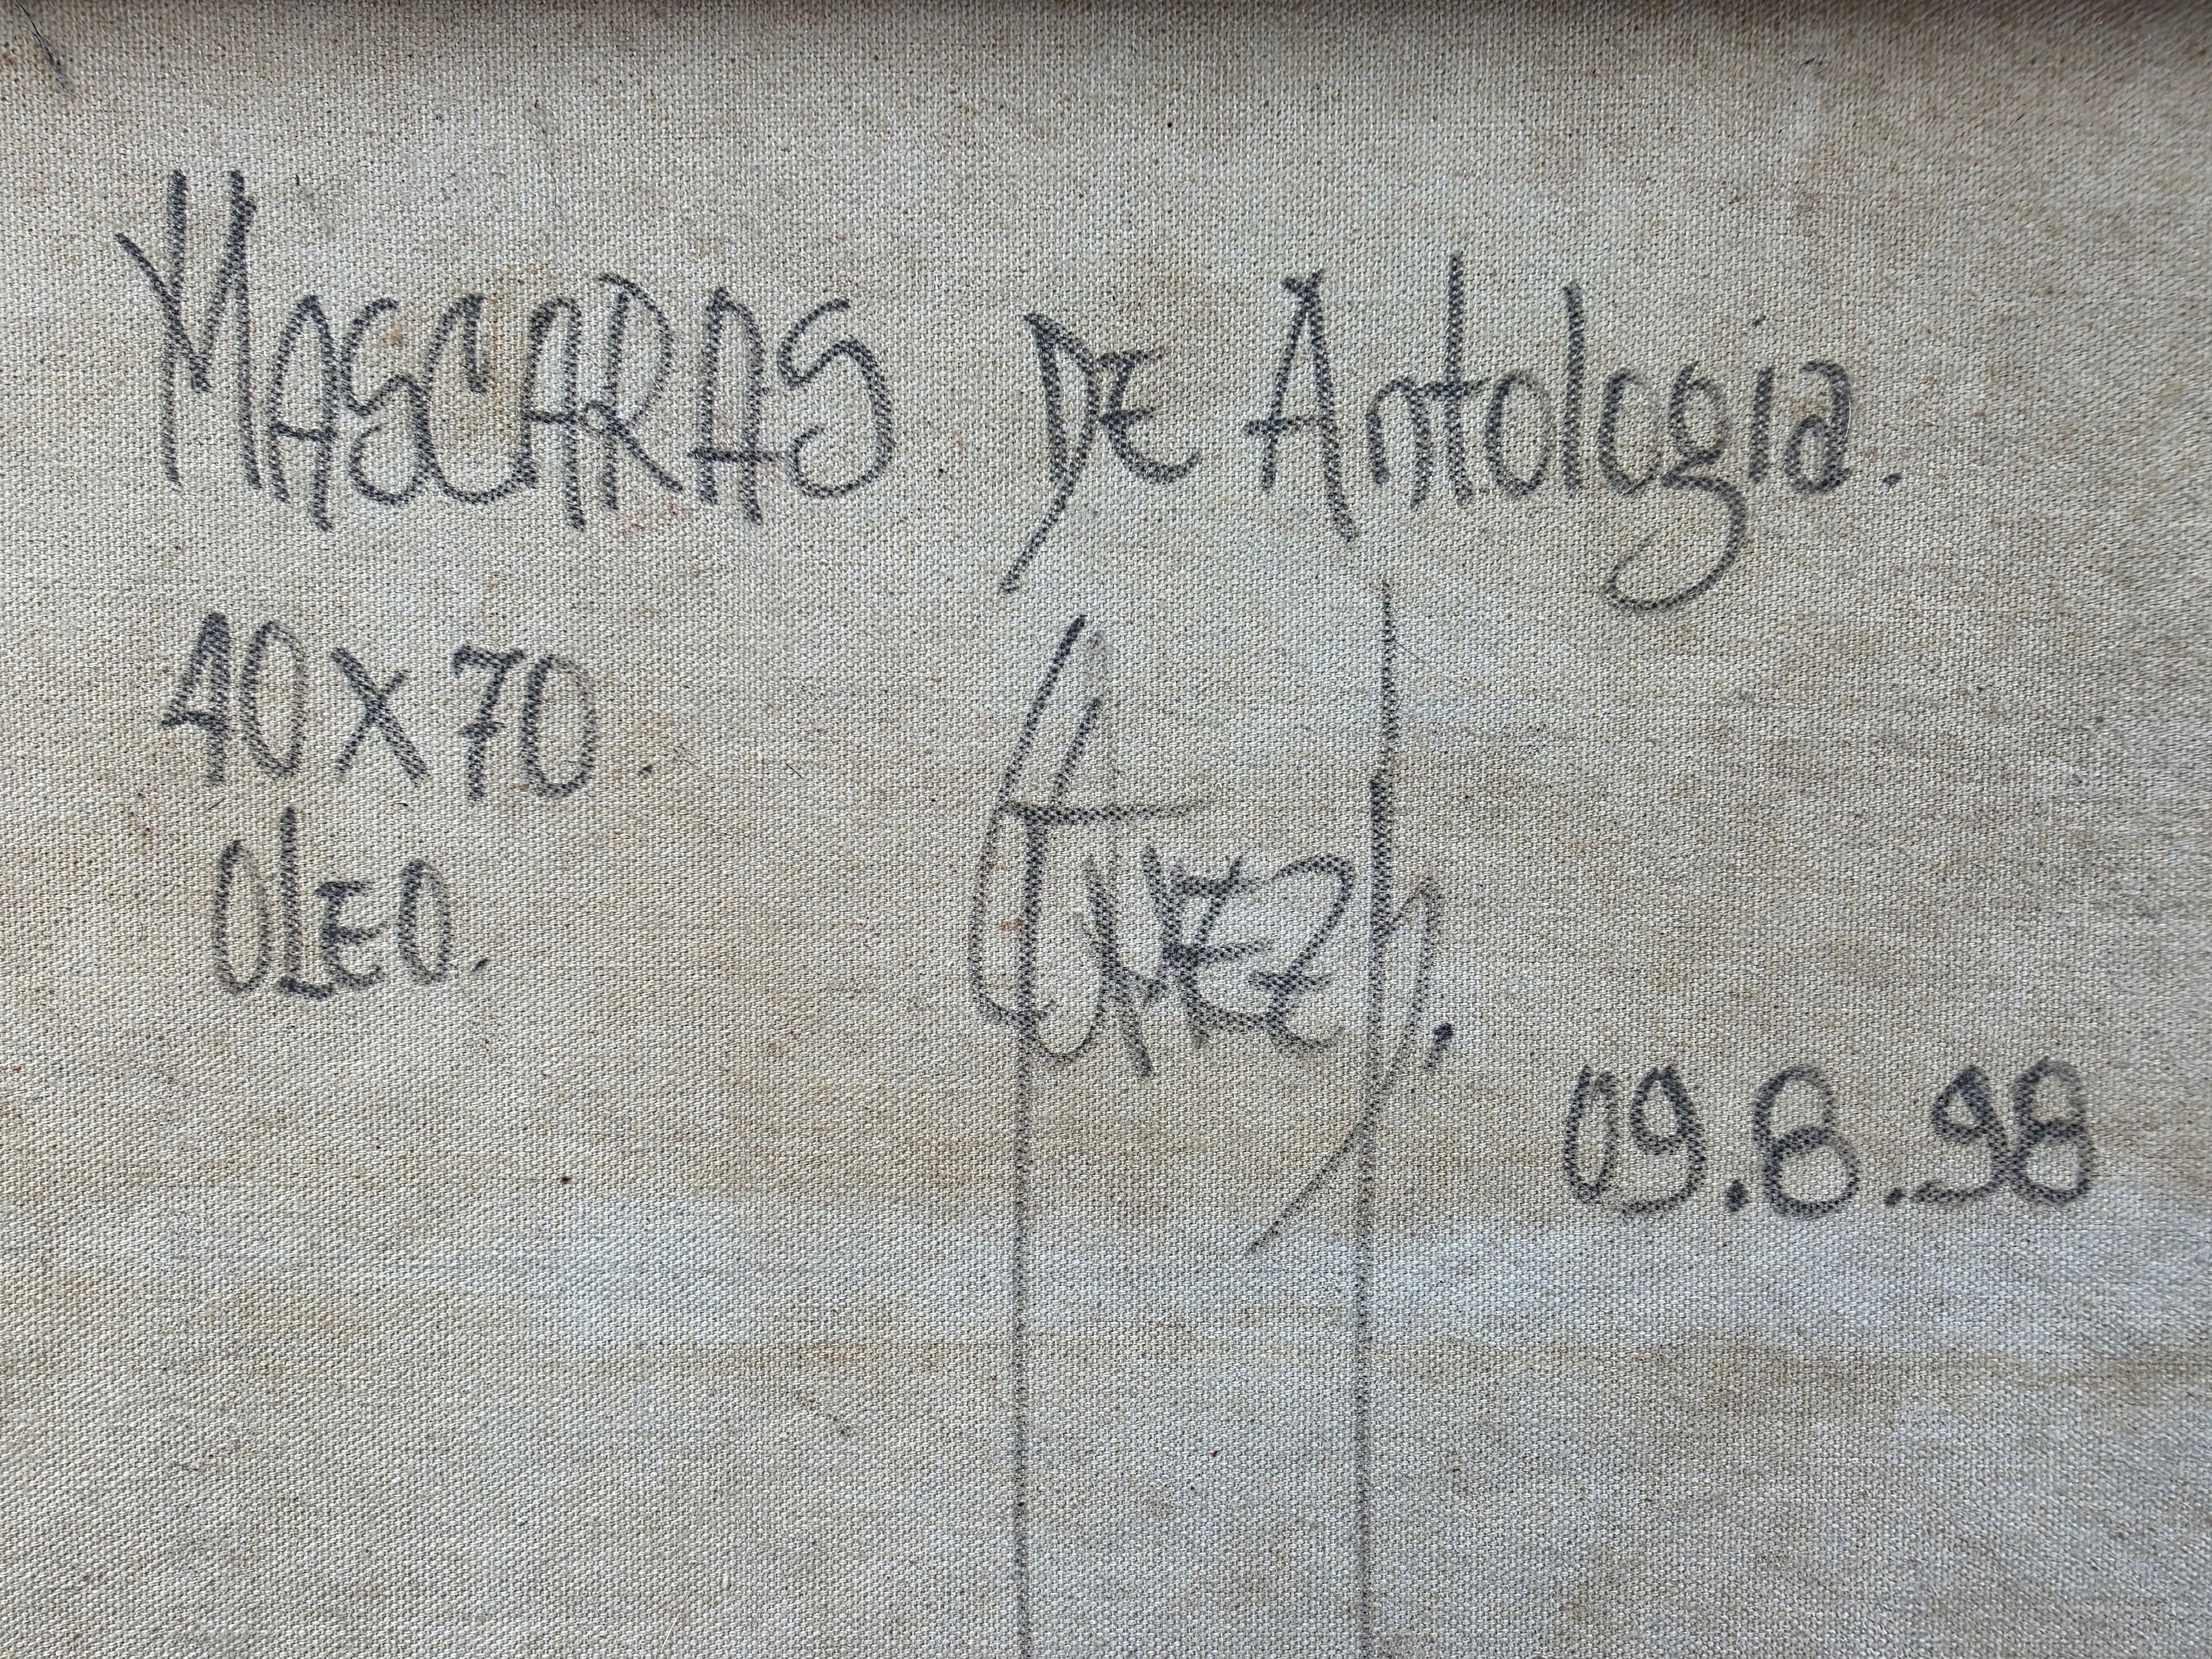 MASCARAS DE Antologia.
40X70.
OLEO.
09.8.98